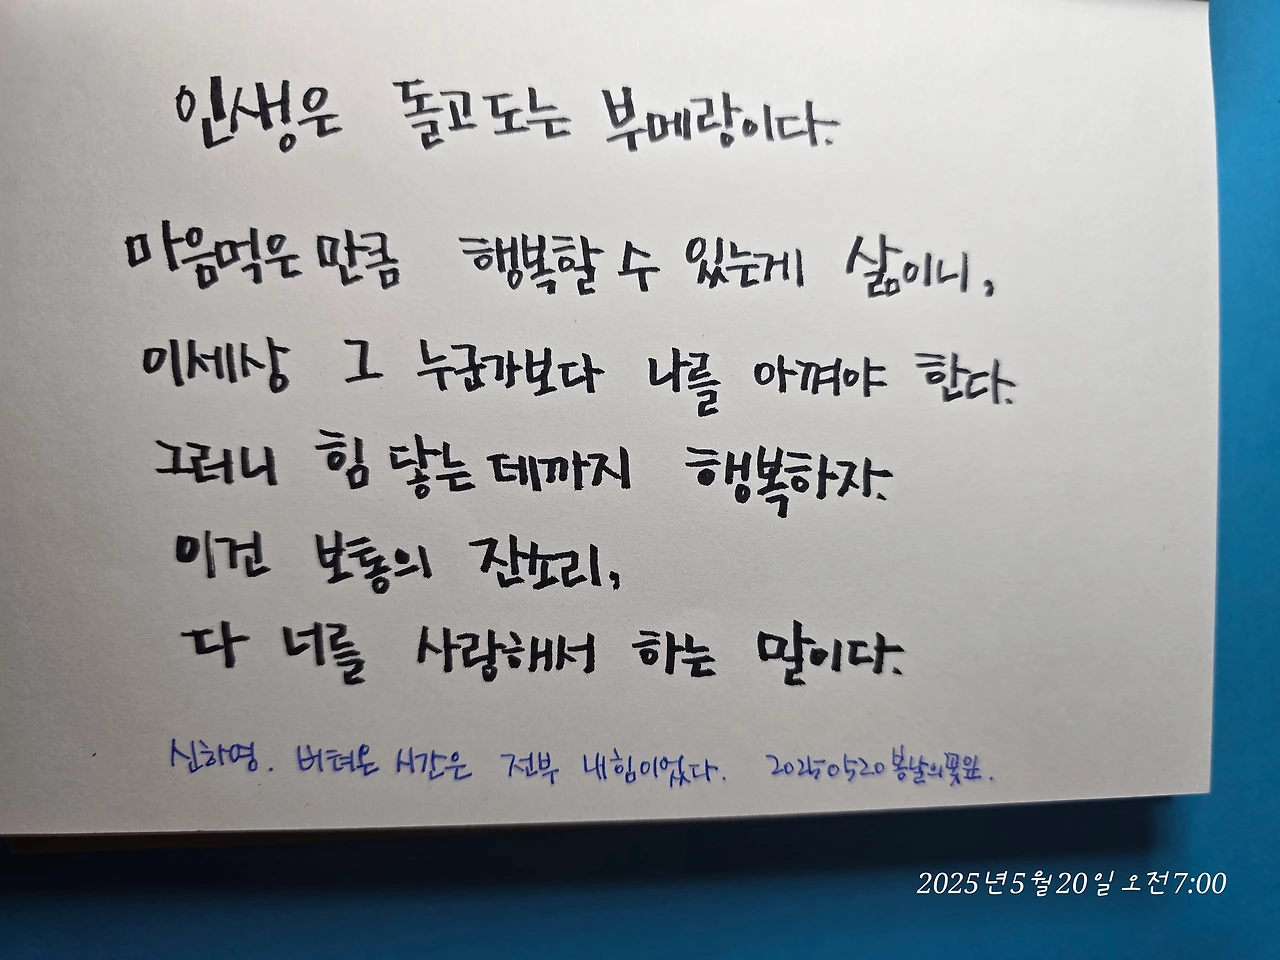 인생은 돌고 도는 부메랑이다.
마음먹은 만큼 행복할 수 있는게 삶이니,
이세상 그 누군가보다 나를 아껴야 한다.
그러니 힘 닿는 데까지 행복하자.
이건 보통의 잔소리,
다 너를 사랑해서 하는 말이다.
신하영. 버텨온 시간은 전부 내힘이었다. 20250520 봄날의꽃잎.
2025년 5월 20일 오전 7:00